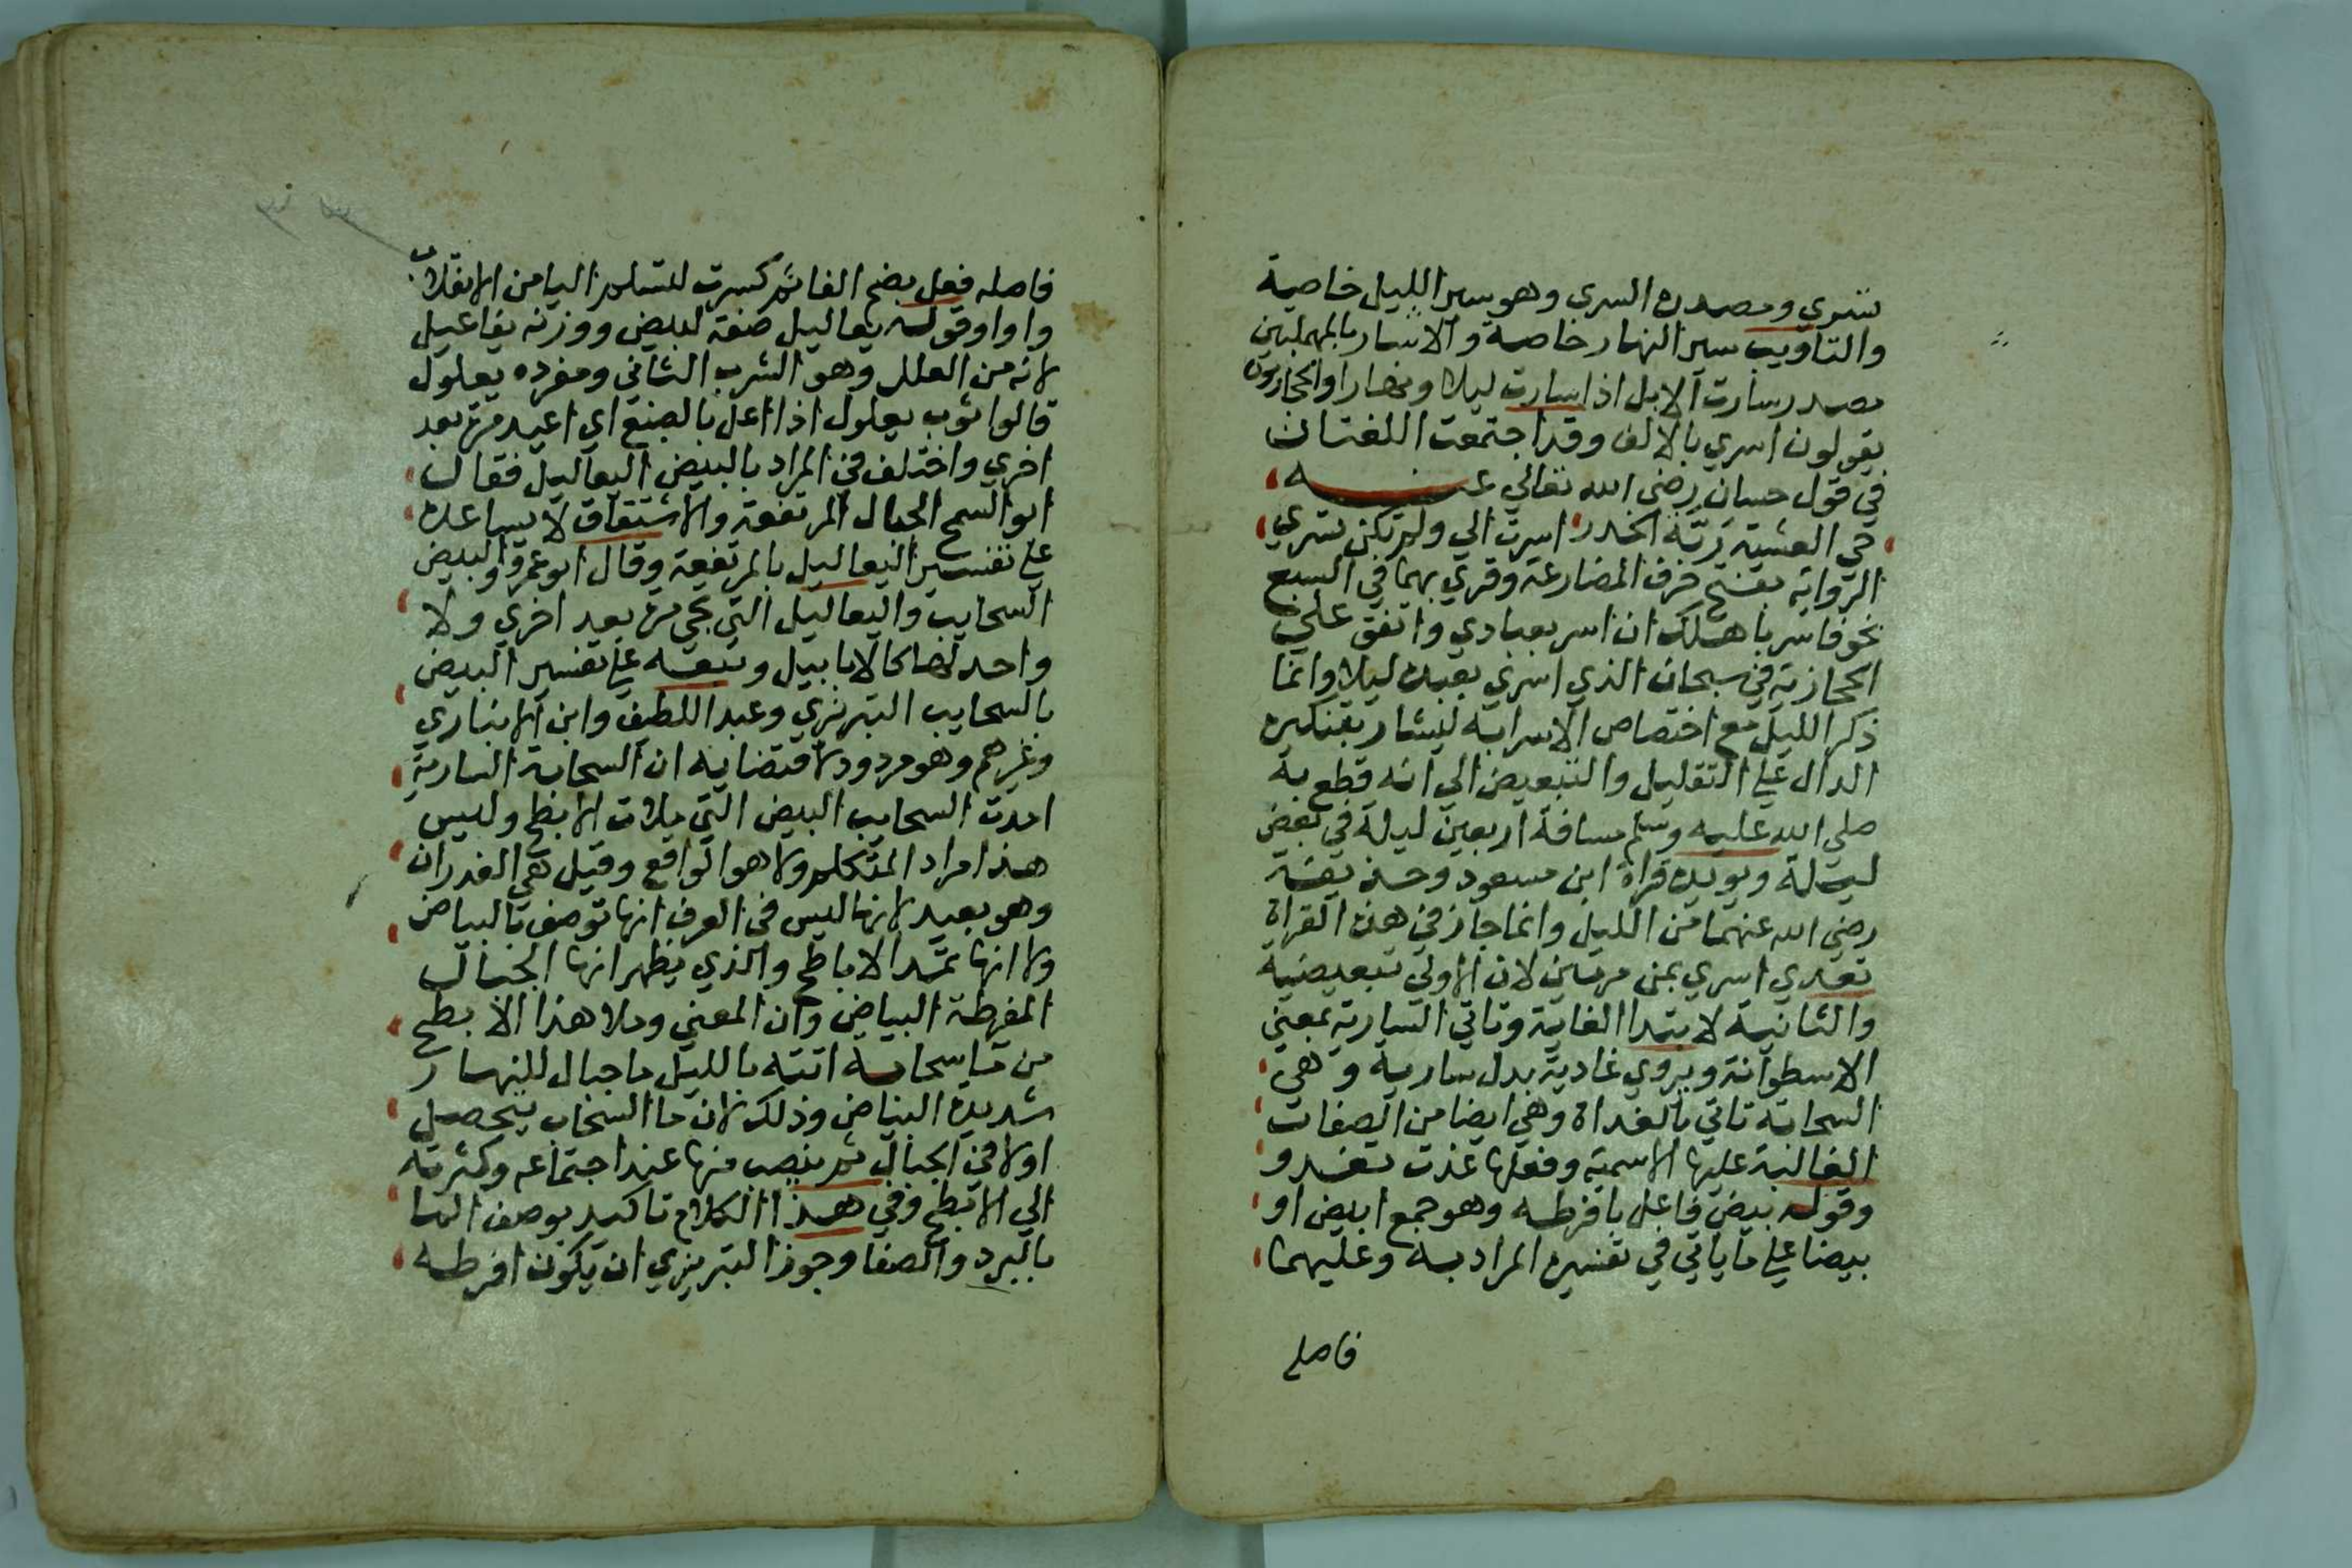 تسري ومصدره السري وهو سير الليل خاصة
والتاويب سير النهار خاصة والاسار بالمهملتين
مصدر سارت الابل اذا سارت ليلا ونهارا والحجازيون
يقولون اسري بالالف وقد اجتمعت اللغتان
في قول حسان رضي الله تعالي عنه
حي العشية ربة الخدر اسرت الي ولم تكن تسري
الرواية بفتح حرف المضارعة وقري بهما في السبع
نحو فاسر باهلك ان اسر بعبادي واتفق علي
الحجازية في سبحان الذي اسري بعبده ليلا وانما
ذكر الليل مع اختصاص الاسرا به ليشار بتنكيره
الدال علي التقليل والتبعيض الي انه قطع به
صلي الله عليه وسلم مسافة اربعين ليلة في بعض
ليلة ويويده قراة ابن مسعود وحذيفة
رضي الله عنهما من الليل وانما جاز في هذه القراة
تعدي اسري بمن مرتين لان الاولي تبعيضية
والثانية لابتدا الغاية وتاتي السارية بمعني
الاسطوانة ويروي غادية بدل سارية وهي
السحابة تاتي بالغداة وهي ايضا من الصفات
الغالبة عليها الاسمية وفعلها غدت تغدو
وقوله بيض فاعل بافرطه وهو جمع ابيض او
بيضا علي ما ياتي في تفسير المراد به وعليهما
فاصله
فاصله فعل بضم الفا ثم كسرت لتسلم اليا من الانقلاب
واوا وقوله يعاليل صفة لبيض ووزنه يفاعيل
لانه من العلل وهو الشرب الثاني ومفرده يعلول
قالوا ثوب يعلول اذا اعل بالصبغ اي اعيد مرة بعد
اخري واختلف في المراد بالبيض اليعاليل فقال
ابو السمح الجبال المرتفعة والاشتقاق لا يساعده
علي تفسير اليعاليل بالمرتفعة وقال ابو عمرو البيض
السحايب واليعاليل التي تجي مرة بعد اخري ولا
واحد لها كالابابيل وتبعه علي تفسير البيض
بالسحايب التبريزي وعبد اللطيف وابن الانباري
وغيرهم وهو مردود لاقتضايه ان السحابة السارية
امدت السحايب البيض التي ملات الابطح وليس
هذا مراد المتكلم ولا هو الواقع وقيل هي الغدران
وهو بعيد لانها ليس في العرف انها توصف بالبياض
ولا انها تمد الاباطح والذي يظهر انها الجبال
المفرطة البياض وان المعني وملا هذا الابطح
من ما سحابة اتته بالليل ما جبال للنهار
شديدة البياض وذلك لان ما السحاب يتحصل
اولا في الجبال ثم ينصب منها عند اجتماعه وكثرته
الي الابطح وفي هذا الكلام تاكيد بوصف الما
بالبرد والصفا وجوز التبريزي ان يكون افرطه